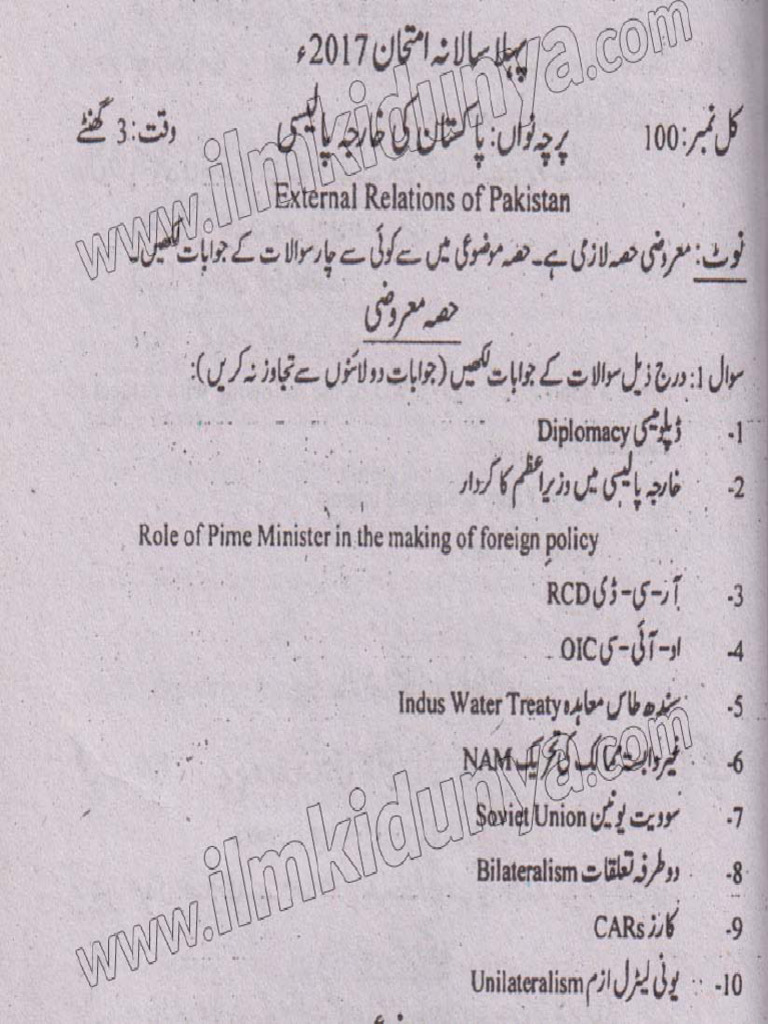 پہلا سالانہ امتحان 2017ء
کل نمبر: 100 پرچہ نواں: پاکستان کی خارجہ پالیسی وقت: 3 گھنٹے
External Relations of Pakistan
نوٹ: معروضی حصہ لازمی ہے۔ حصہ موضوعی میں سے کوئی سے چار سوالات کے جوابات لکھیں۔
حصہ معروضی
سوال 1: درج ذیل سوالات کے جوابات لکھیں (جوابات دو لائنوں سے تجاوز نہ کریں):
1- ڈپلومیسی Diplomacy
2- خارجہ پالیسی میں وزیراعظم کا کردار
Role of Pime Minister in the making of foreign policy
3- آر-سی-ڈی RCD
4- او-آئی-سی OIC
5- سندھ طاس معاہدہ Indus Water Treaty
6- غیر وابستہ ممالک کی تحریک NAM
7- سوویت یونین Soviet Union
8- دو طرفہ تعلقات Bilateralism
9- کارز CARs
10- یونی لیٹرل ازم Unilateralism
www.ilmkidunya.com
www.ilmkidunya.com